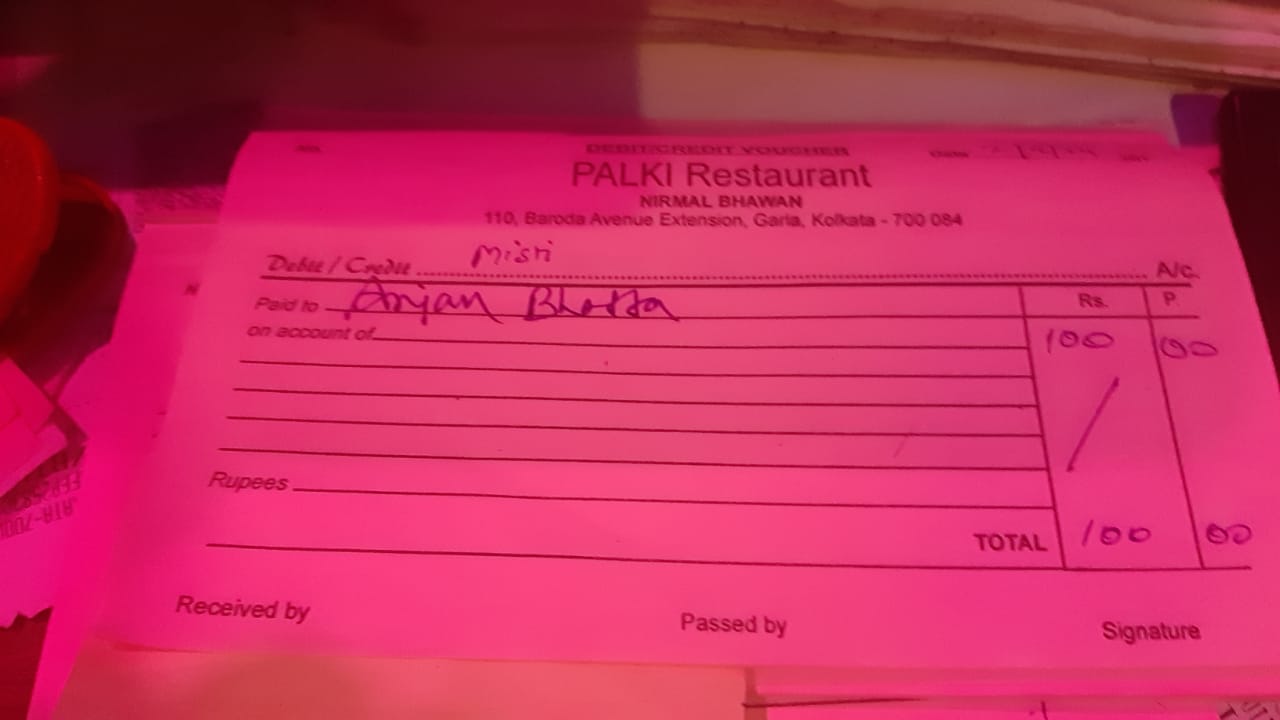 No.
DEBIT/CREDIT VOUCHER
Date
PALKI Restaurant
NIRMAL BHAWAN
110, Baroda Avenue Extension, Garia, Kolkata - 700 084
Debit / Credit Misti A/c.
Paid to Anjan Bhatta Rs. P.
on account of 100 00
Rupees
TOTAL 100 00
Received by Passed by Signature